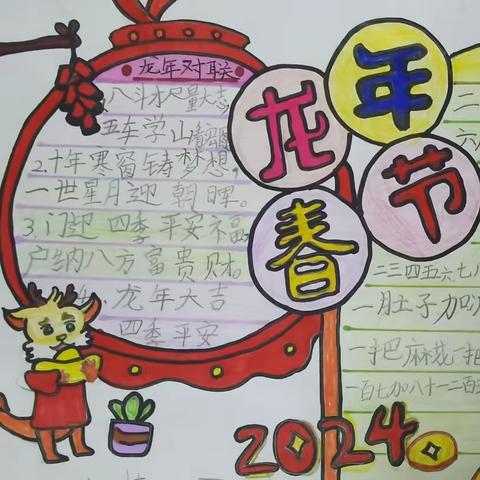 龙年对联
五车学
2.十年寒窗铸梦想,
一世星月迎朝晖。
3.门迎四季平安福
户纳八方富贵财。
龙年大吉
四季平安
龙年
春节
二
六
二三四五六七八
一月土子加
一把麻花一把
一百七加八十一二百
2024